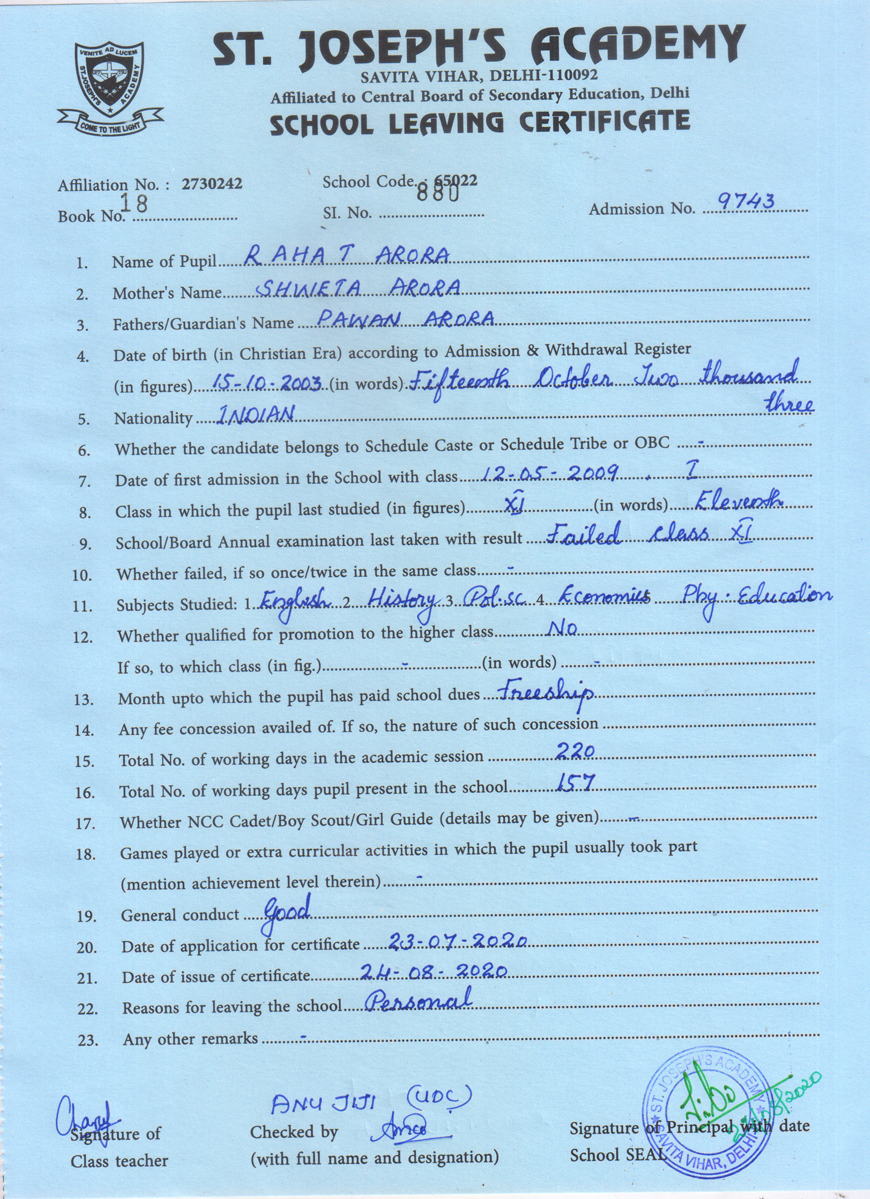 VENITE AD LUCEM
ST.JOSEPH'S ACADEMY
COME TO THE LIGHT
ST. JOSEPH'S ACADEMY
SAVITA VIHAR, DELHI-110092
Affiliated to Central Board of Secondary Education, Delhi
SCHOOL LEAVING CERTIFICATE
Affiliation No. : 2730242 School Code. : 65022
Book No. 18 SI. No. 880 Admission No. 9743
1. Name of Pupil RAHAT ARORA
2. Mother's Name SHWETA ARORA
3. Fathers/Guardian's Name PAWAN ARORA
4. Date of birth (in Christian Era) according to Admission & Withdrawal Register
(in figures) 15-10-2003 (in words) Fifteenth October Two thousand
three
5. Nationality INDIAN
6. Whether the candidate belongs to Schedule Caste or Schedule Tribe or OBC -
7. Date of first admission in the School with class 12-05-2009 . I
8. Class in which the pupil last studied (in figures) XI (in words) Eleventh
9. School/Board Annual examination last taken with result Failed class XI
10. Whether failed, if so once/twice in the same class -
11. Subjects Studied: 1. English 2. History 3. Pol.sc 4. Economics 5 Phy. Education
12. Whether qualified for promotion to the higher class No
If so, to which class (in fig.) - (in words) -
13. Month upto which the pupil has paid school dues Freeship
14. Any fee concession availed of. If so, the nature of such concession
15. Total No. of working days in the academic session 220
16. Total No. of working days pupil present in the school 157
17. Whether NCC Cadet/Boy Scout/Girl Guide (details may be given) -
18. Games played or extra curricular activities in which the pupil usually took part
(mention achievement level therein) -
19. General conduct Good
20. Date of application for certificate 23-07-2020
21. Date of issue of certificate 24-08-2020
22. Reasons for leaving the school Personal
23. Any other remarks -
ANU JIJI (UDC)
Signature of Checked by Signature of Principal with date
Class teacher (with full name and designation) School SEAL
ST. JOSEPH'S ACADEMY
SAVITA VIHAR, DELHI